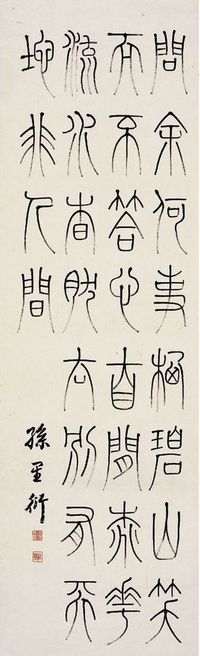 問余何事栖碧山笑
而不答心自閒桃華
流水杳然去別有天
地非人間
孫星衍